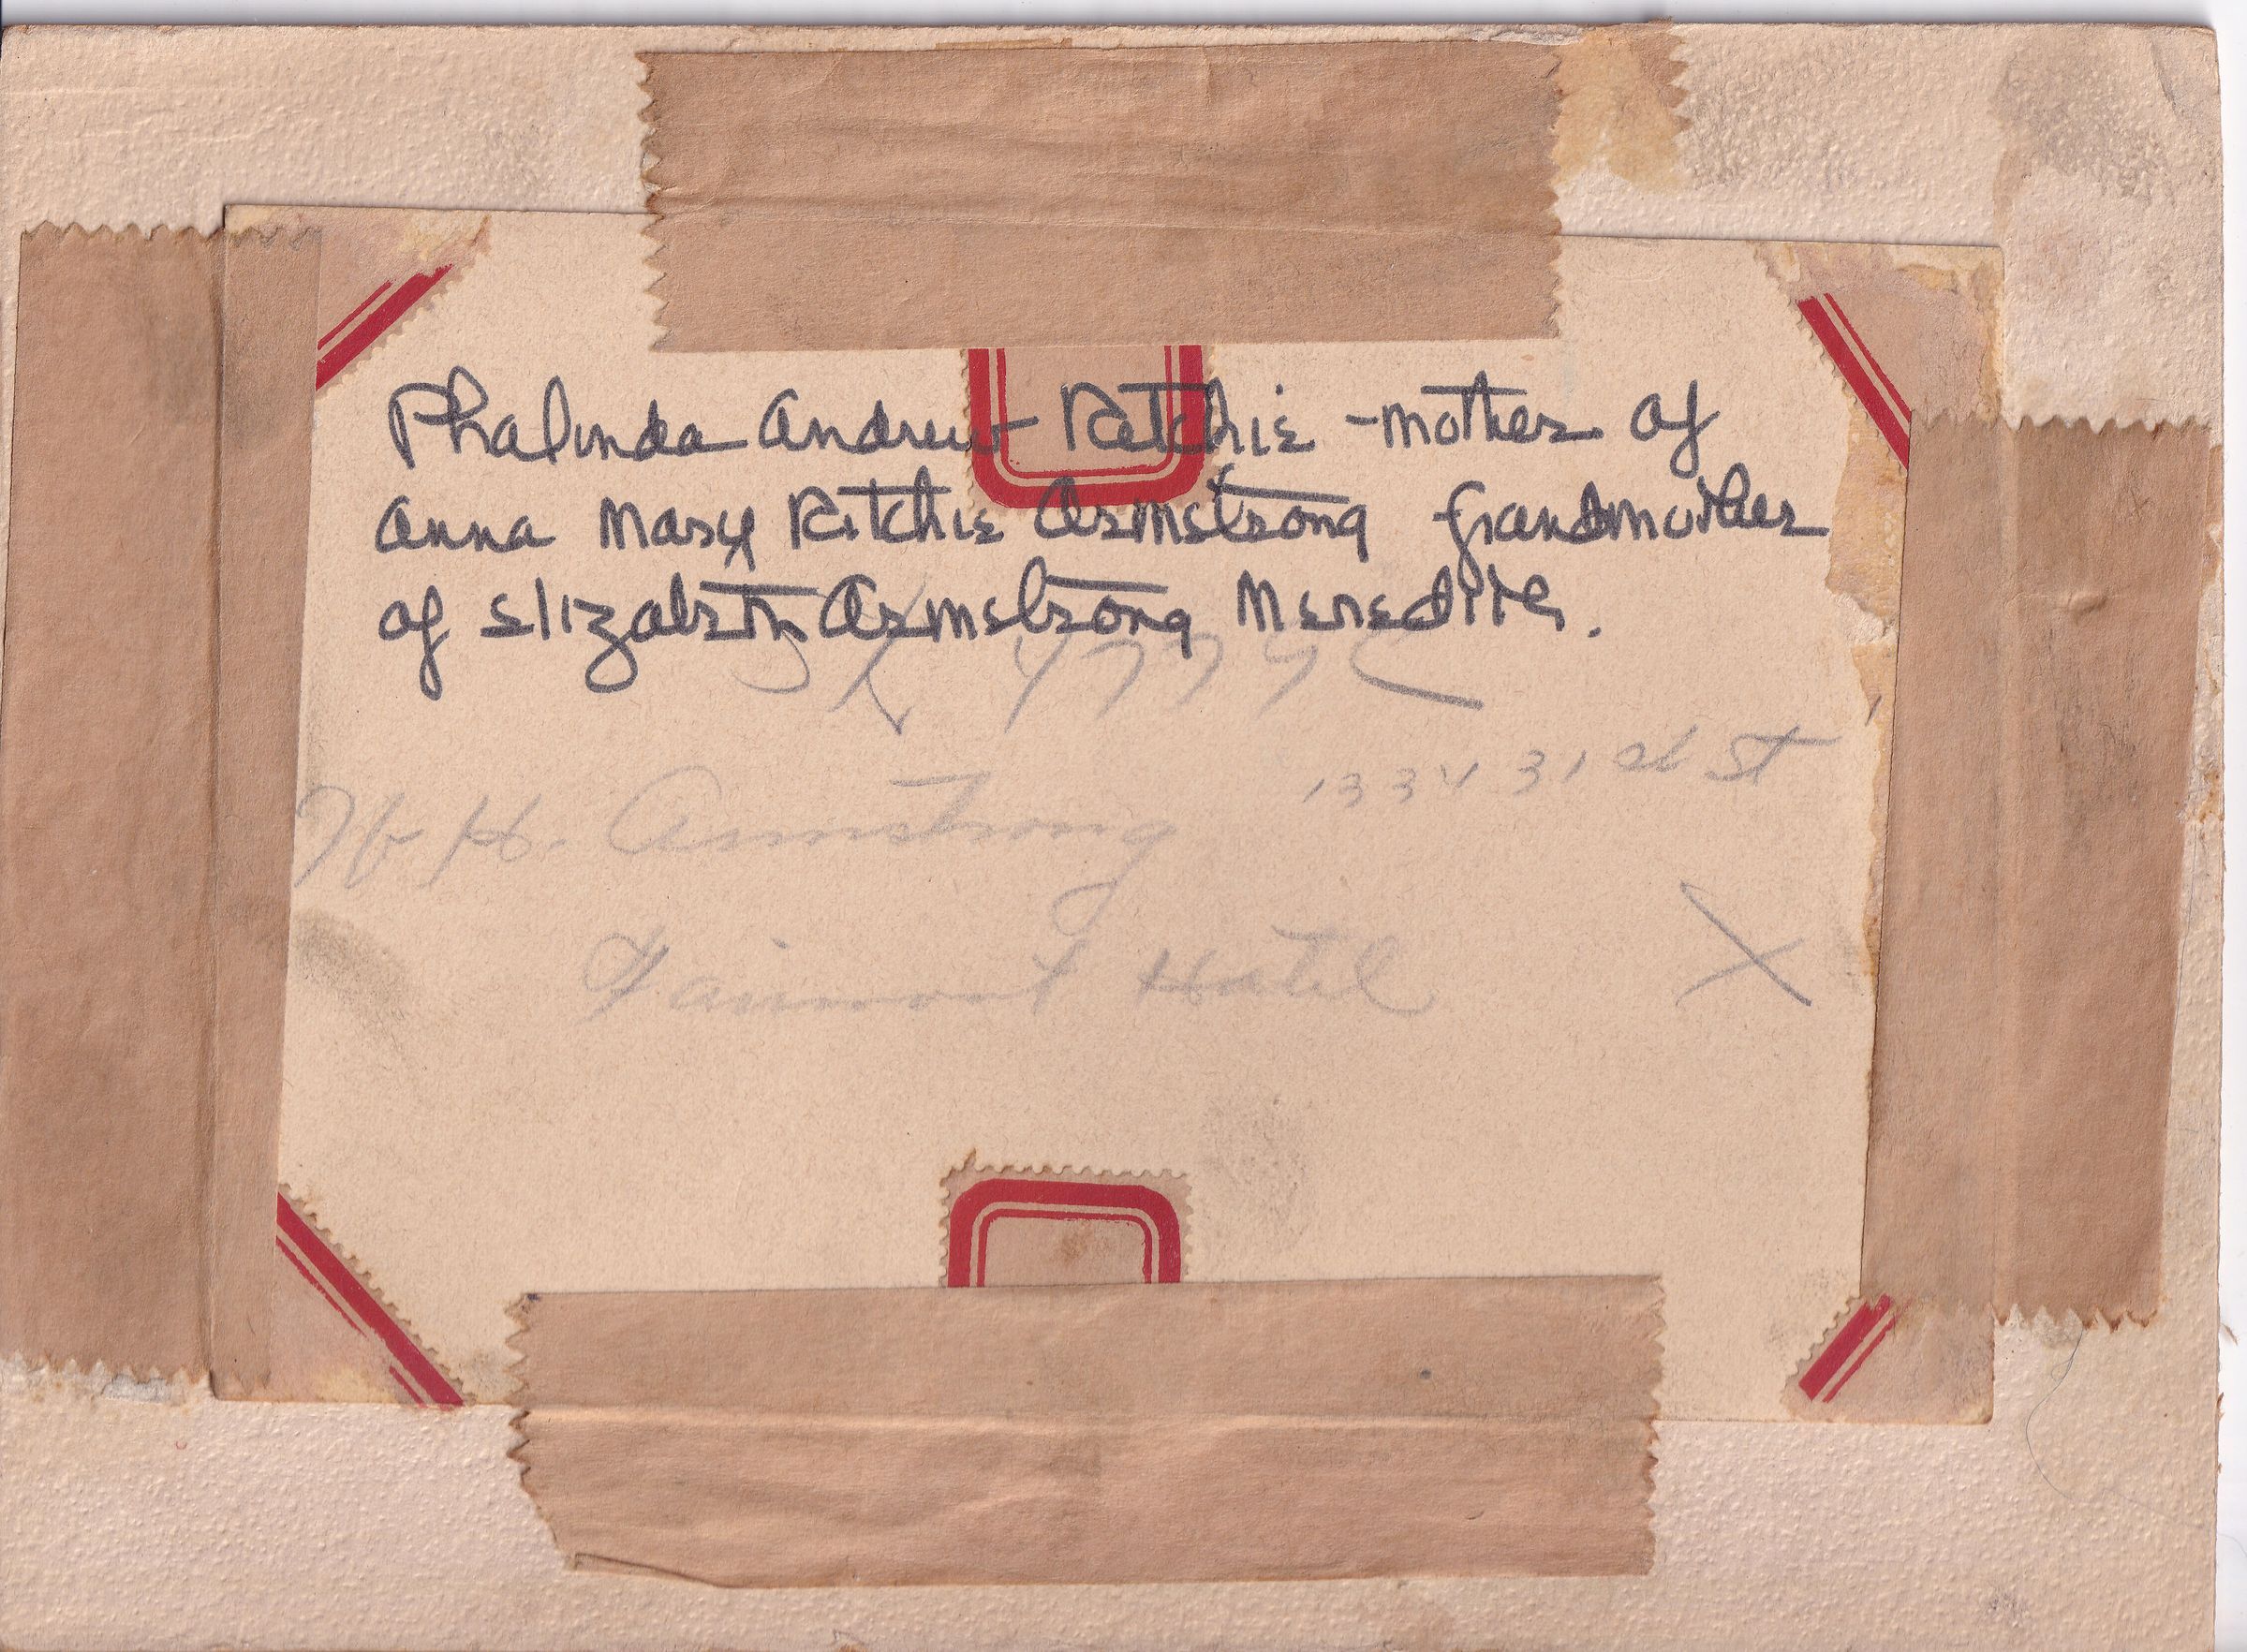 Phalinda Andrew Ritchie - mother of
Anna Mary Ritchie Armstrong grandmother
of Elizabeth Armstrong Meredith.
1334 31 st St
W. H. Armstrong
Fairmont Hotel
X